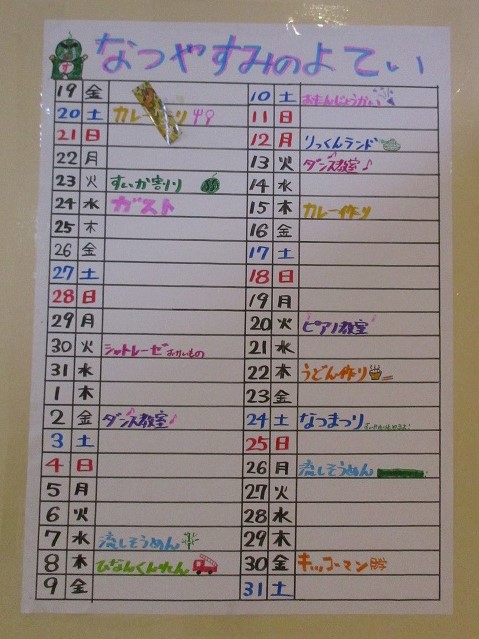 なつやすみのよてい
19 金
20 土 カレー
21 日
22 月
23 火 すいか割り
24 水 ガスト
25 木
26 金
27 土
28 日
29 月
30 火 シャトレーゼ おかいもの
31 水
1 木
2 金 ダンス教室♪
3 土
4 日
5 月
6 火
7 水 流しそうめん
8 木 ひなんくんれん
9 金
10 土 おたんじょうかい
11 日
12 月 りっくんランド
13 火 ダンス教室♪
14 水
15 木 カレー作り
16 金
17 土
18 日
19 月
20 火 ピアノ教室♪
21 水
22 木 うどん作り
23 金
24 土 なつまつり
25 日
26 月 流しそうめん
27 火
28 水
29 木
30 金 キッコーマン
31 土